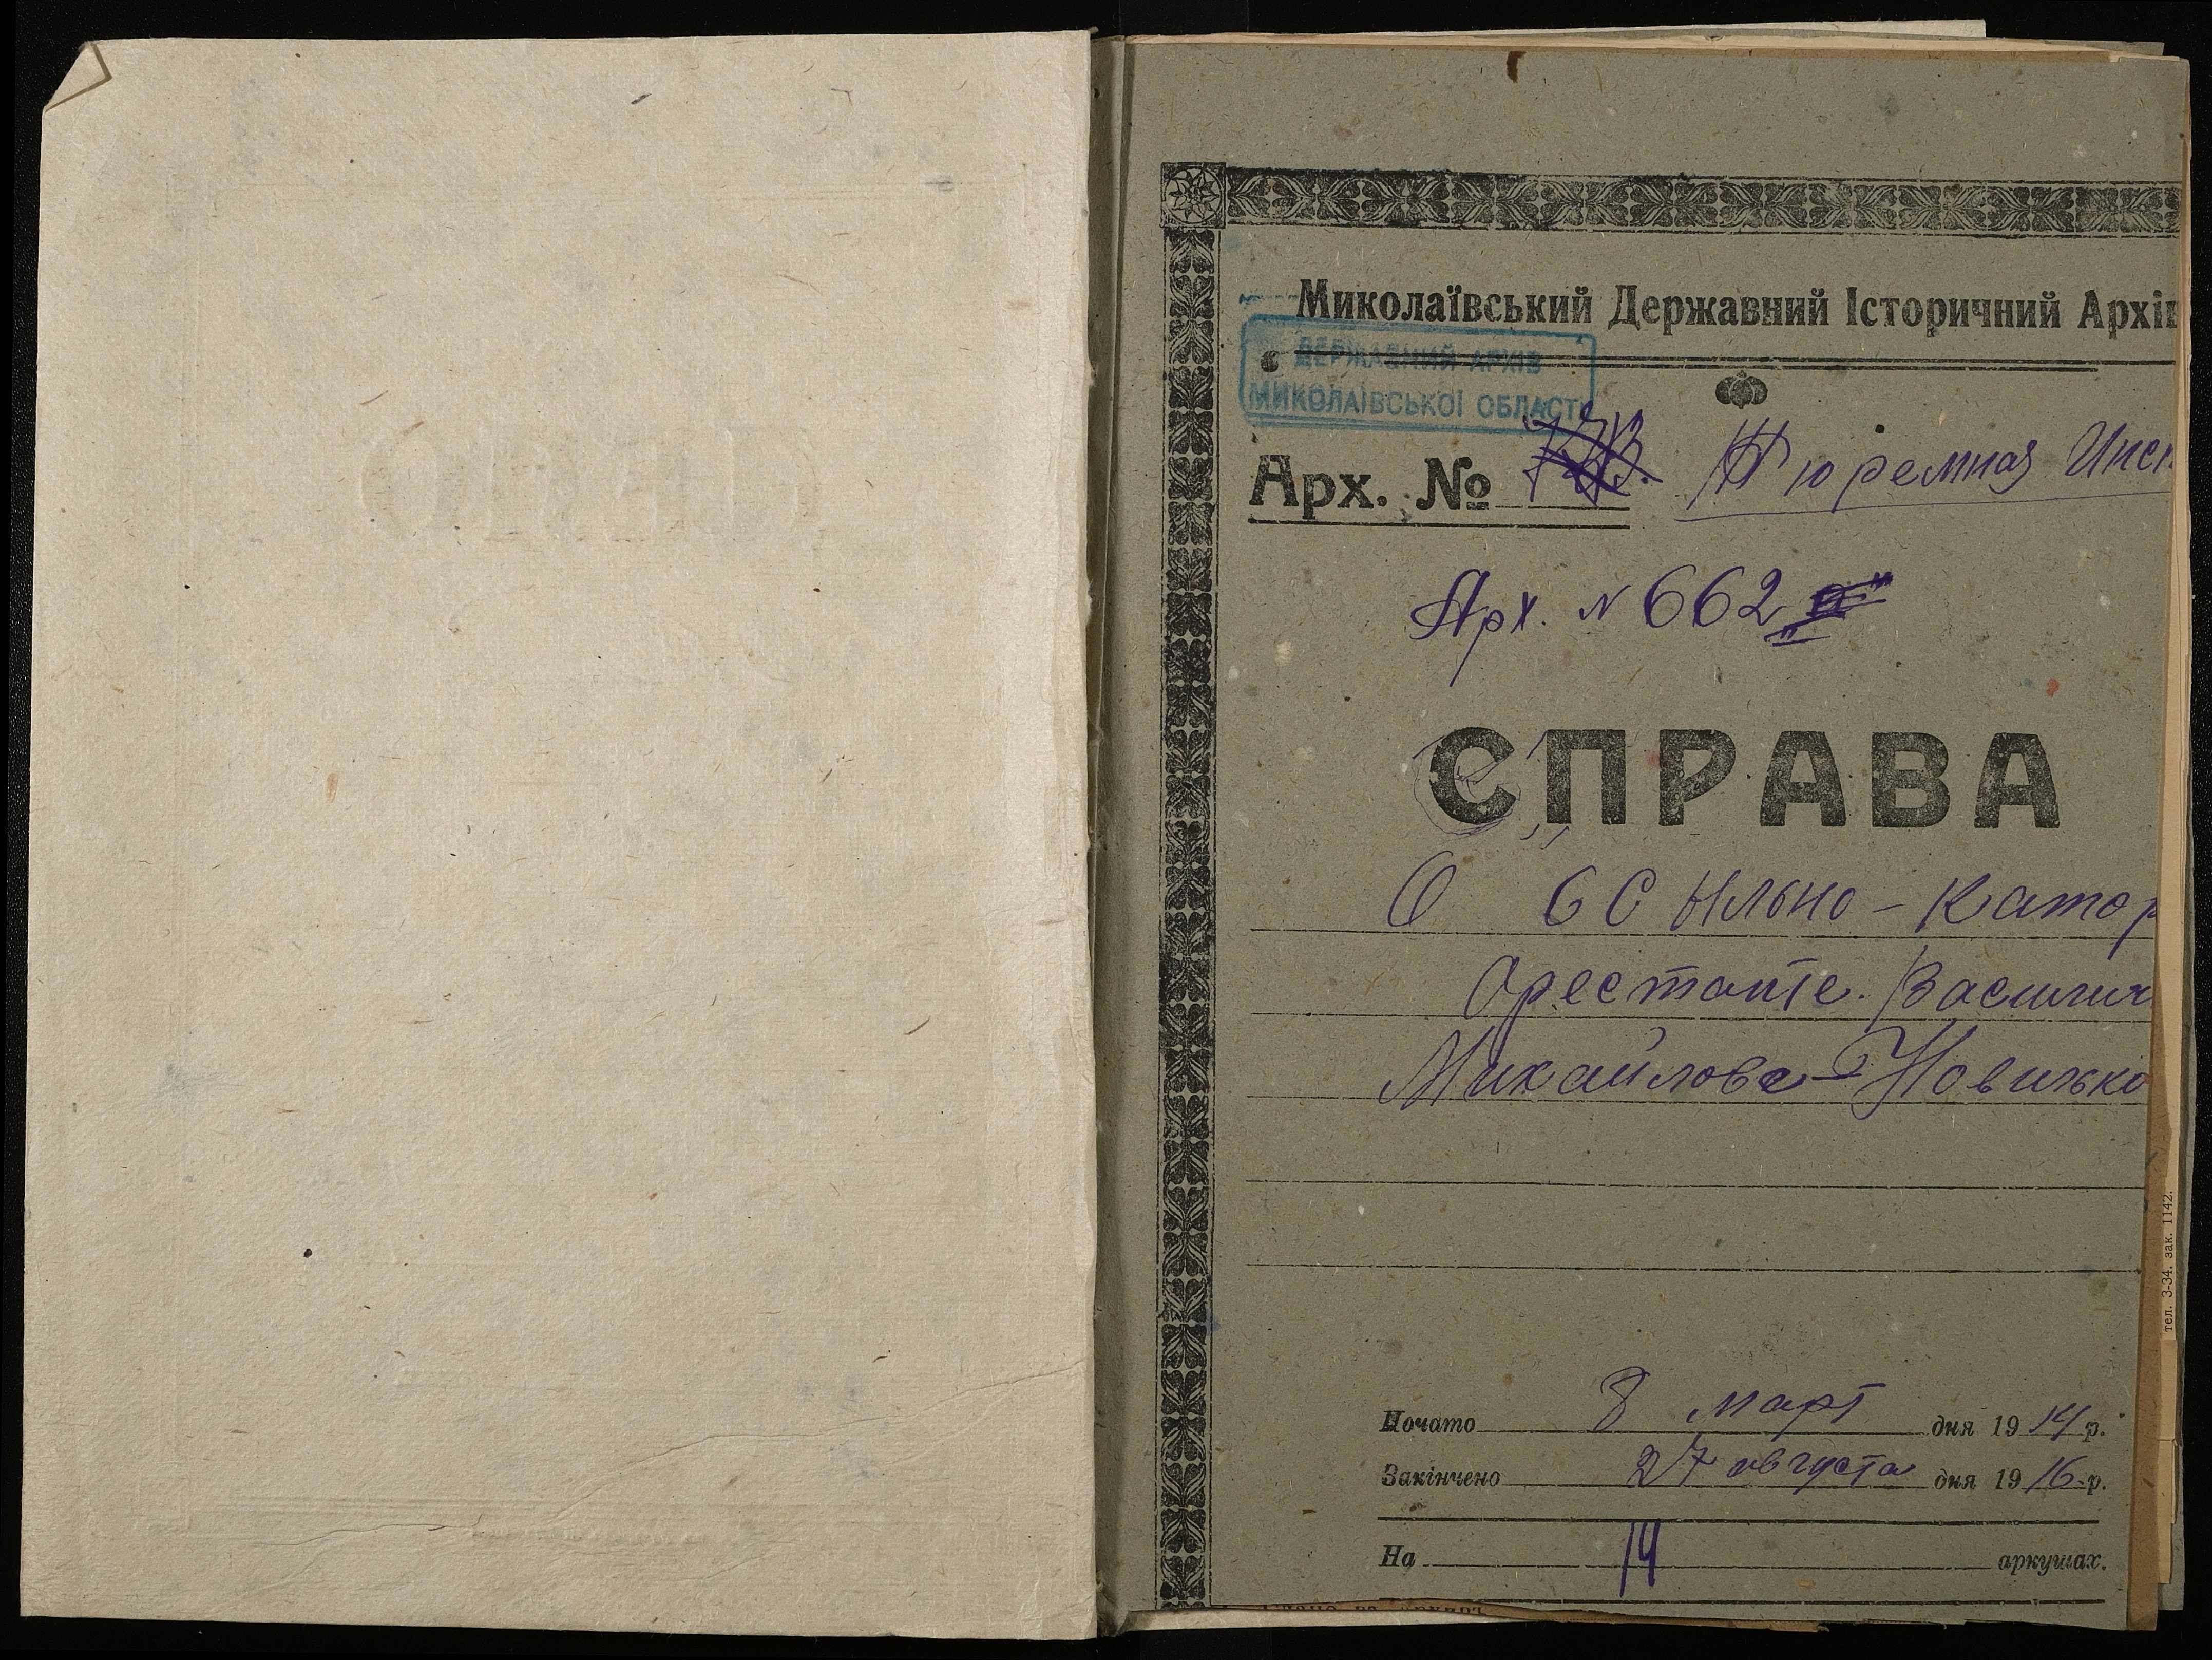 Миколаївський Державний Історичний Архів
ДЕРЖАВНИЙ АРХІВ
МИКОЛАЇВСЬКОЇ ОБЛАСТІ
Арх. № Тюремная Инс
Арх. N 662
СПРАВА
О ссыльно-катор
Арестанте. Василии
Михайлове-Новичко
Почато 8 март дня 1914 р.
Закінчено 27 августа дня 1916 р.
На 14 аркушах.
тел. 3-34. зак. 1142.